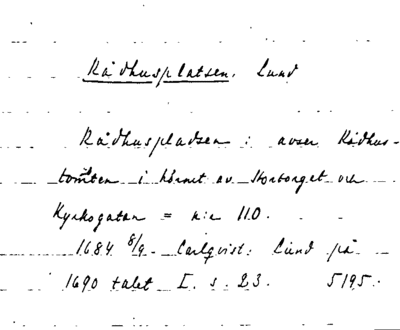 Rådhusplatsen. Lund
Rådhuspladsen : avser Rådhus-
tomten i hörnet av Stortorget och
Kyrkogatan = n:r 110.
1684 8/9. Carlqvist: Lund på
1690 talet I. s. 23. 5195.